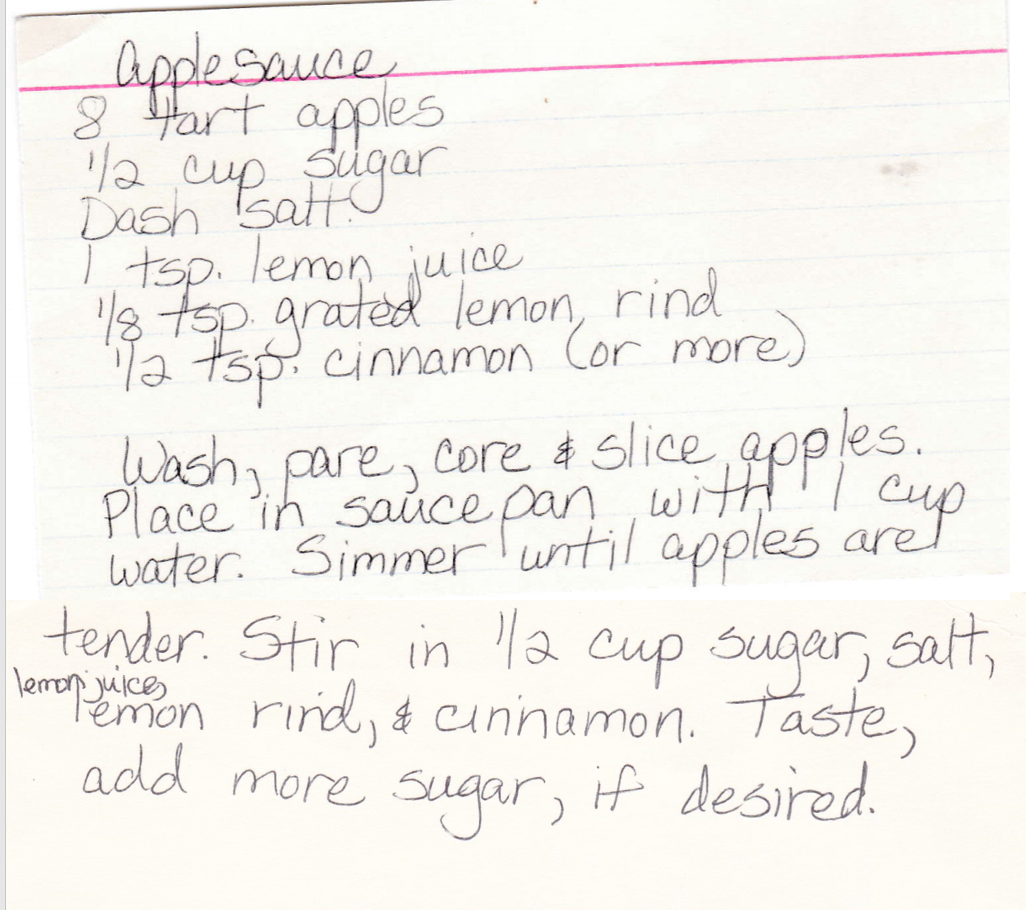 Applesauce
8 tart apples
1/2 cup sugar
Dash salt.
1 tsp. lemon juice
1/8 tsp. grated lemon rind
1/2 tsp. cinnamon (or more)
Wash, pare, core & slice apples.
Place in sauce pan with 1 cup
water. Simmer until apples are
tender. Stir in 1/2 cup sugar, salt,
lemon juice,
lemon rind, & cinnamon. Taste,
add more sugar, if desired.